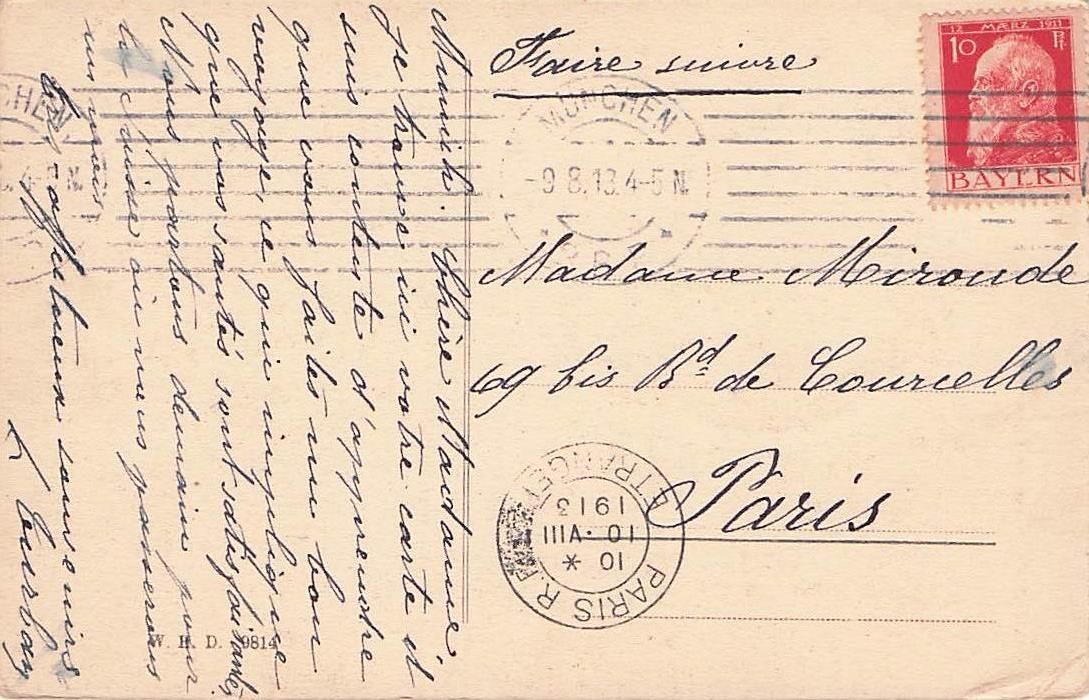 Faire suivre
12 MÆRZ 1911
10 Pf
BAYERN
MÜNCHEN
-9 8.13.4-5 N.
CHEN
Madame Mironde
69 bis Bd de Courcelles
Paris
PARIS R.P. ETRANGER
10 * 
10 · VIII
1913
Munich. Chère Madame,
Je trouve ici votre carte et
suis contente d'apprendre
que vous faites un bon
voyage, ce qui implique
que vos santés sont satisfaisantes,
Nous partons demain pour
la Suisse où nous passerons
un mois
Affectueux souvenirs
W. H. D. 9814